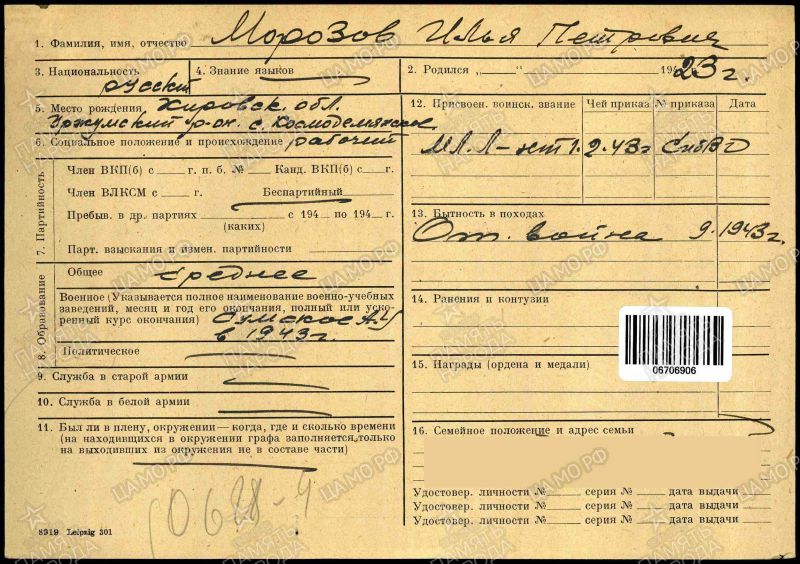 1. Фамилия, имя, отчество Морозов Илья Петрович
3. Национальность русский
4. Знание языков
2. Родился „ “ 194 23 г.
5. Место рождения Кировск. обл.
Уржумский р-он. с. Космодемьянское
6. Социальное положение и происхождение рабочий
7. Партийность
Член ВКП(б) с г. п. б. № Канд. ВКП(б) с г.
Член ВЛКСМ с г. Беспартийный
Пребыв. в др. партиях с 194 по 194 г.
(каких)
Парт. взыскания и измен. партийности
8. Образование
Общее среднее
Военное (Указывается полное наименование военно-учебных
заведений, месяц и год его окончания, полный или уско-
ренный курс окончания) Сумское А.У
в 1943 г.
Политическое
9. Служба в старой армии
10. Служба в белой армии
11. Был ли в плену, окружении—когда, где и сколько времени
(на находящихся в окружении графа заполняется, только
на выходивших из окружения не в составе части)
0628-4
8919 Leipzig 301
12. Присвоен. воинск. звание Чей приказ № приказа Дата
Мл. Л-нт 1.2.43г СибВО
13. Бытность в походах
От. война 9.1943г.
14. Ранения и контузии
06706906
15. Награды (ордена и медали)
16. Семейное положение и адрес семьи
Удостовер. личности № серия № дата выдачи
Удостовер. личности № серия № дата выдачи
Удостовер. личности № серия № дата выдачи
ПАМЯТЬ НАРОДА
ЦАМО.РФ